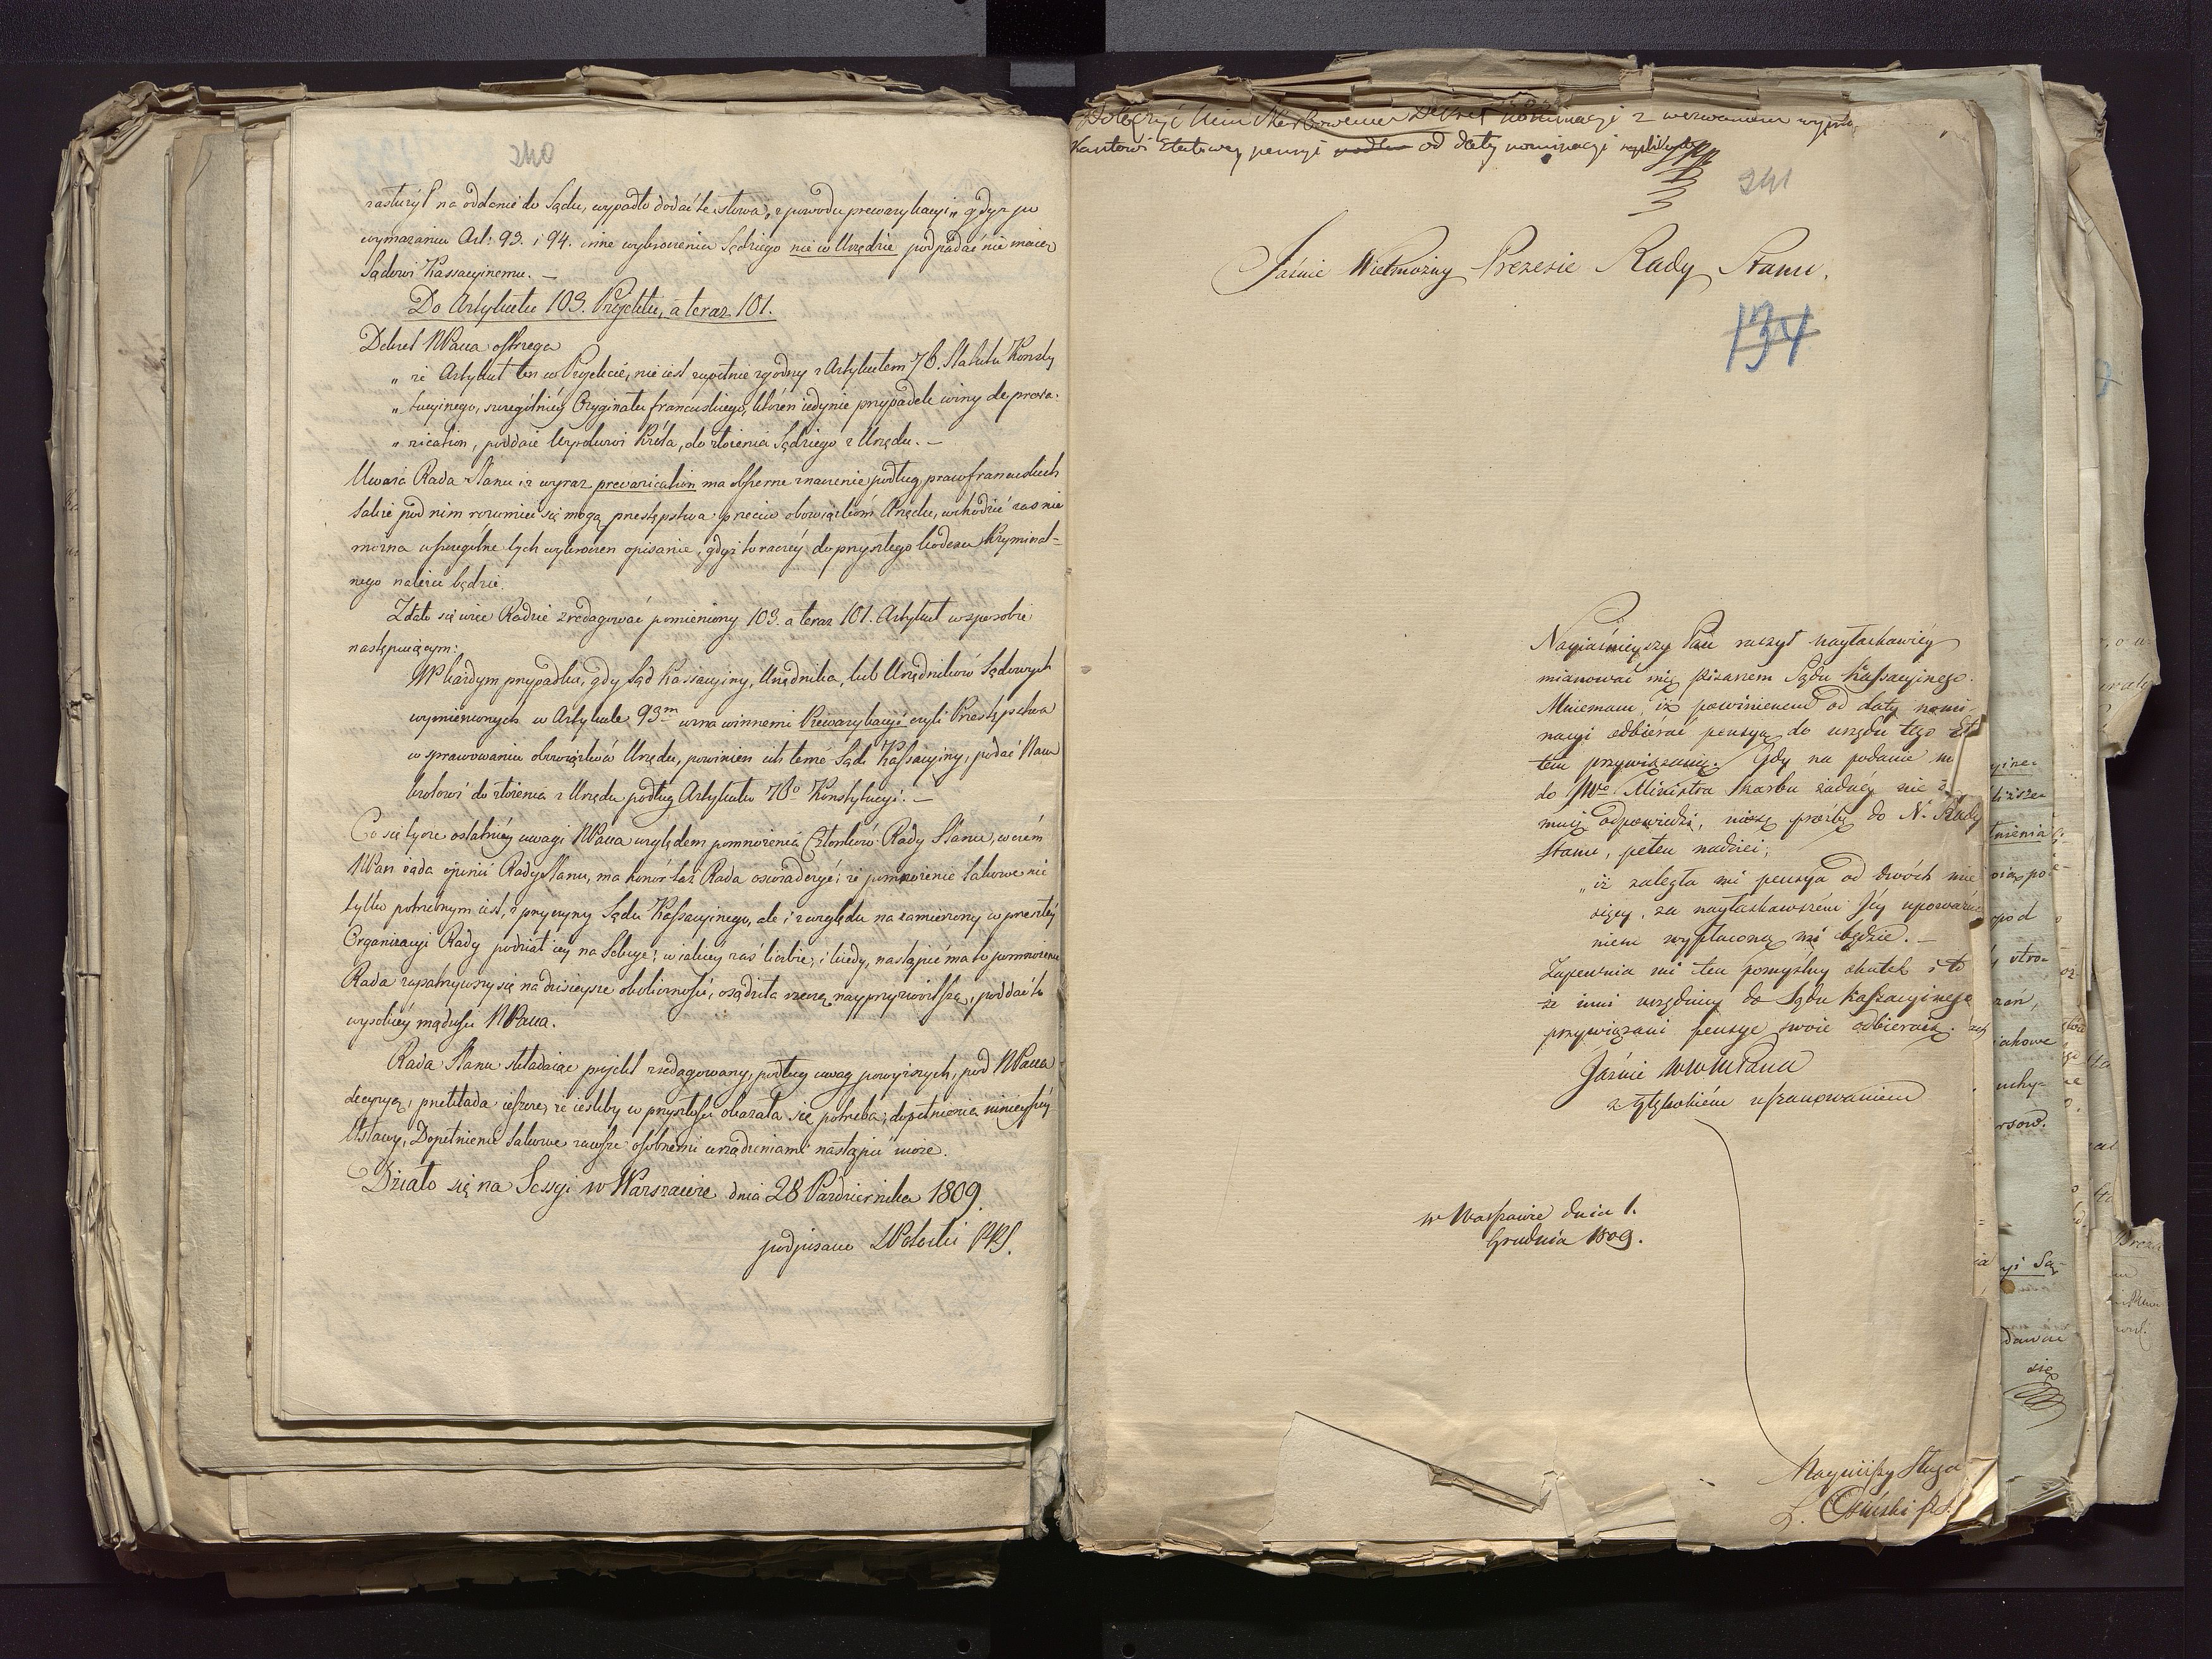 240
zasłużył na oddanie do Sądu, wypadło dodać te słowa „z powodu prewarykacyi„ gdyż po
wymazaniu Art: 93. i 94. inne wykroczenia Sędziego nie w Urzędzie podpadać nie maią
Sądowi Kassacyinemu. —
Do Artykułu 103. Projektu, a teraz 101.
Dekret NPana ostrzega
„ że Artykuł ten w Projekcie, nie iest zupełnie zgodny z Artykułem 76. Statutu Konsty
„ tucyinego, szczególniéy Oryginału francuskiego, któren iedynie przypadek winy de preva-
„ rication, poddaie Wyrokowi Króla, do złożenia Sędziego z Urzędu. —
Uważa Rada Stanu iż wyraz prevarication ma obszerne znaczenie podług praw francuskich
takie pod nim rozumieć się mogą przestępstwa przeciw obowiązkóm Urzędu, wchodzić zaś nie
można w szczególne tych wykroczeń opisanie, gdyż to raczéy do przyszłego kodexu kryminal=
nego należeć będzie.
Zdało się więc Radzie zredagować pomieniony 103. a teraz 101. Artykuł w sposobie
następuiącym:
W każdym przypadku, gdy Sąd Kassacyiny, Urzędnika, lub Urzędników Sądowych
wymienionych w Artykule 93m uzna winnemi Prewarykacyi czyli Przestępstwa
w sprawowaniu obowiązków Urzędu, powinien ich tenże Sąd Kassacyiny, podać Nam
Królowi do złożenia z Urzędu podług Artykułu 76o Konstytucyi. —
Co się tycze ostatniéy uwagi NPana względem pomnożenia Członków Rady Stanu, w czém
NPan żąda opinii Rady Stanu, ma honór taż Rada oświadczyć; że pomnożenie takowe nie
tylko potrzebnym iest, z przyczyny Sądu Kassacyinego, ale i względu na zamierzony w przeszłéy
Organizacyi Rady podział iey na Sekcye; w iakiey zaś liczbie, i kiedy, nastąpić ma to pomnożenie
Rada zapatrywszy się na dzisieysze okoliczności, osądziła rzeczą nayprzyzwoitszą, poddać to
wysokiéy mądrości NPana.
Rada Stanu składaiąc projekt zredagowany, podług uwag powyższych, pod NPana
decyzyą, przekłada ieszcze, że ieśliby w przyszłości okazała się potrzeba, dopełnienia ninieyszéy
Ustawy, Dopełnienie takowe zawsze osobnemi urządzeniami nastąpić może.
Działo się na Sessyi w Warszawie dnia 28 Października 1809.
podpisano SPotocki PRS.
Dołączyć Mini Skarbowemu Dekret nominacyi z wezwaniem wypła
od daty nominacyi
241
Jaśnie Wielmożny Prezesie Rady Stanu.
134
Nayiaśnieyszy Pan raczył nayłaskawiéy
mianować mię pisarzem Sądu Kassacyinego.
Mniemam, iż powinienem od daty nomi-
nacyi odbierać pensyą do urzędu tego Eta
tem przywiązaną. Gdy na podanie m
do JWo Ministra Skarbu żadnéy nie o
muię odpowiedzi, niosę prosbę do N. Rady
Stanu, pełen nadziei;
„iż zaległa mi pensya od dwóch mie
sięcy, za nayłaskawszém Jéy upoważnie
niem wypłaconą mi będzie. —
Zapewnia mi ten pomyślny skutek i to
że inni urzędnicy do Sądu Kassacyinego
przywiązani pensye swoie odbieraią.
Jaśnie WWMPana
z głębokiém uszanowaniem
w Warszawie dnia 1.
Grudnia 1809.
Nayniższy Sługa
L. Osiński